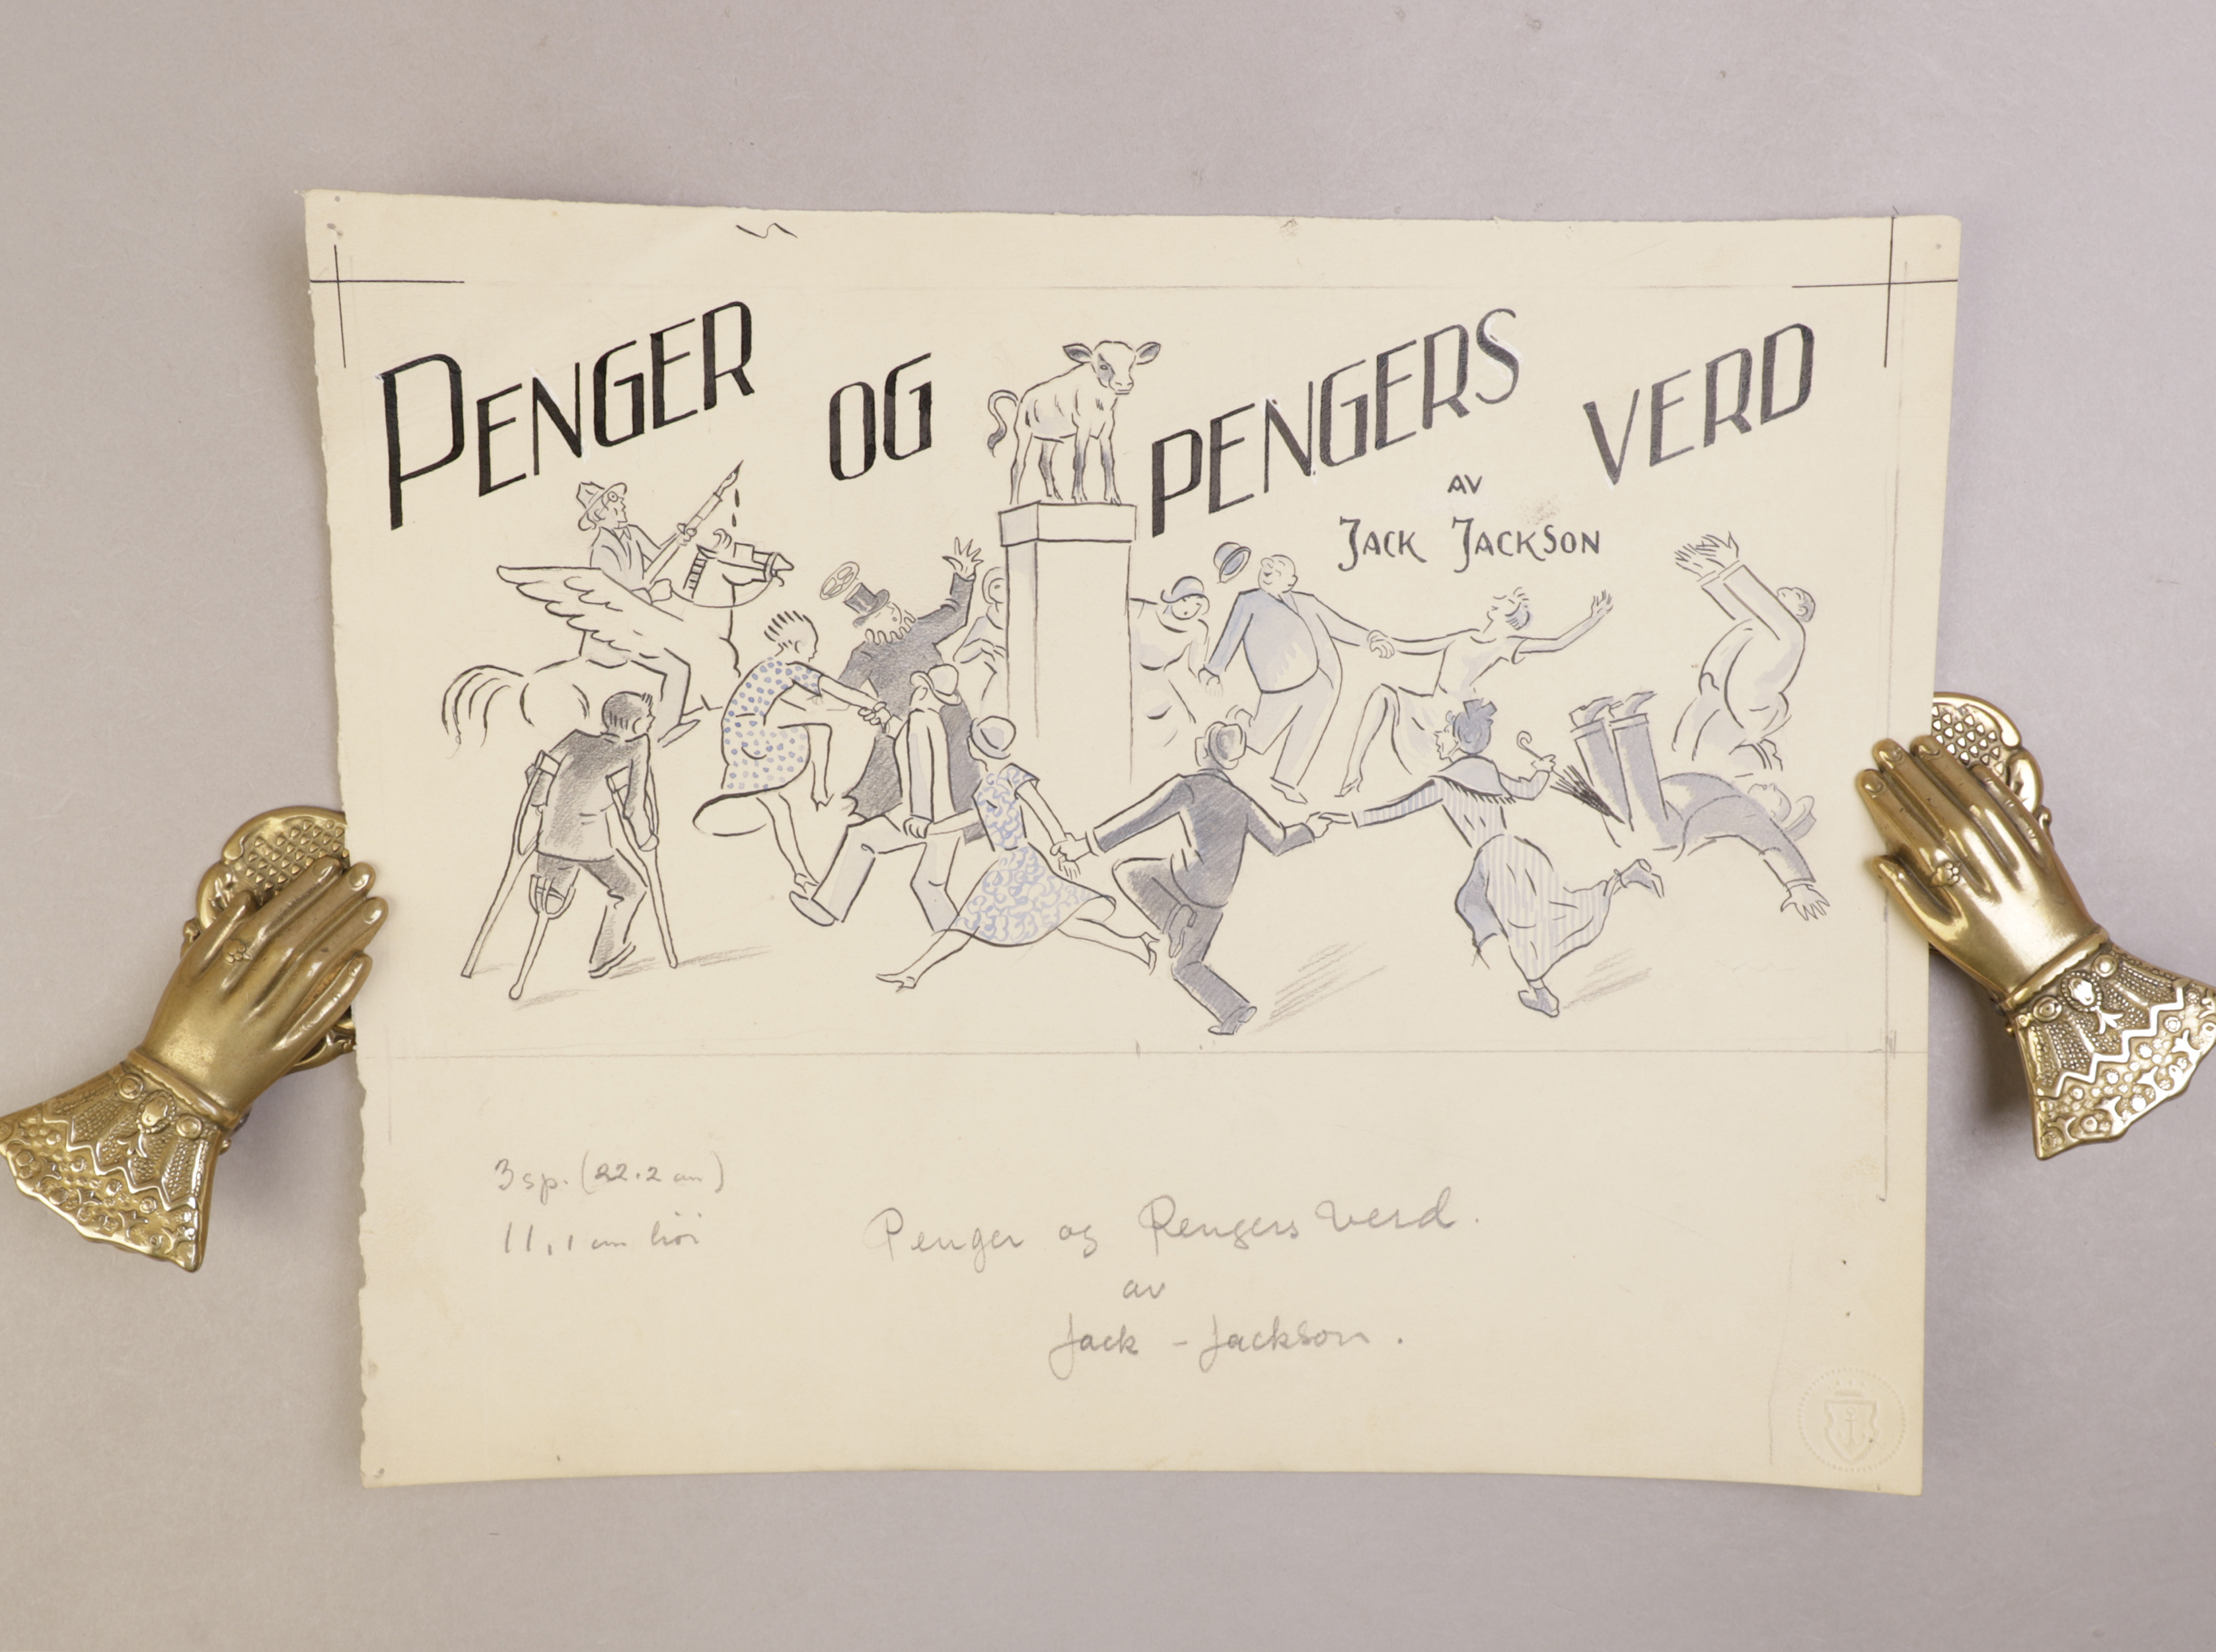 PENGER OG PENGERS VERD
AV
JACK JACKSON
3 sp. (22.2 cm)
11,1 cm höi
Penger og Pengers Verd.
av
Jack - Jackson.